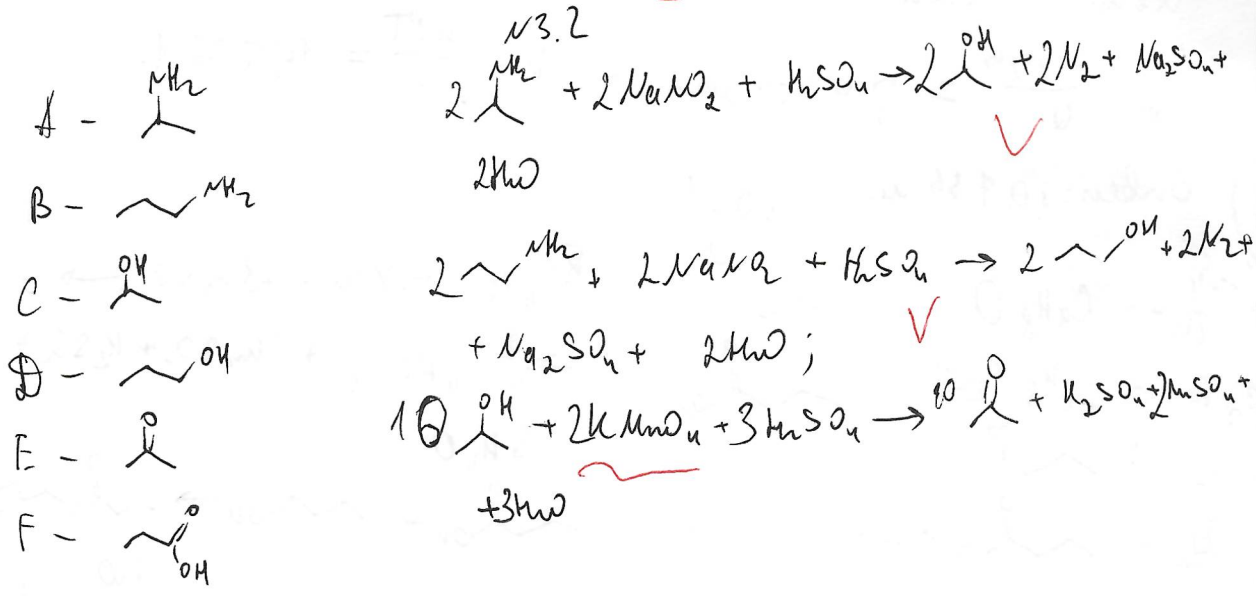 N3.2
A - NH2
B - NH2
C - OH
D - OH
E - O
F - O OH
2 NH2 + 2NaNO2 + H2SO4 → 2 OH + 2N2 + Na2SO4 +
2H2O
2 NH2 + 2NaNO2 + H2SO4 → 2 OH + 2N2 +
+ Na2SO4 + 2H2O ;
10 OH + 2KMnO4 + 3H2SO4 → 10 O + K2SO4 + 2MnSO4 +
+3H2O